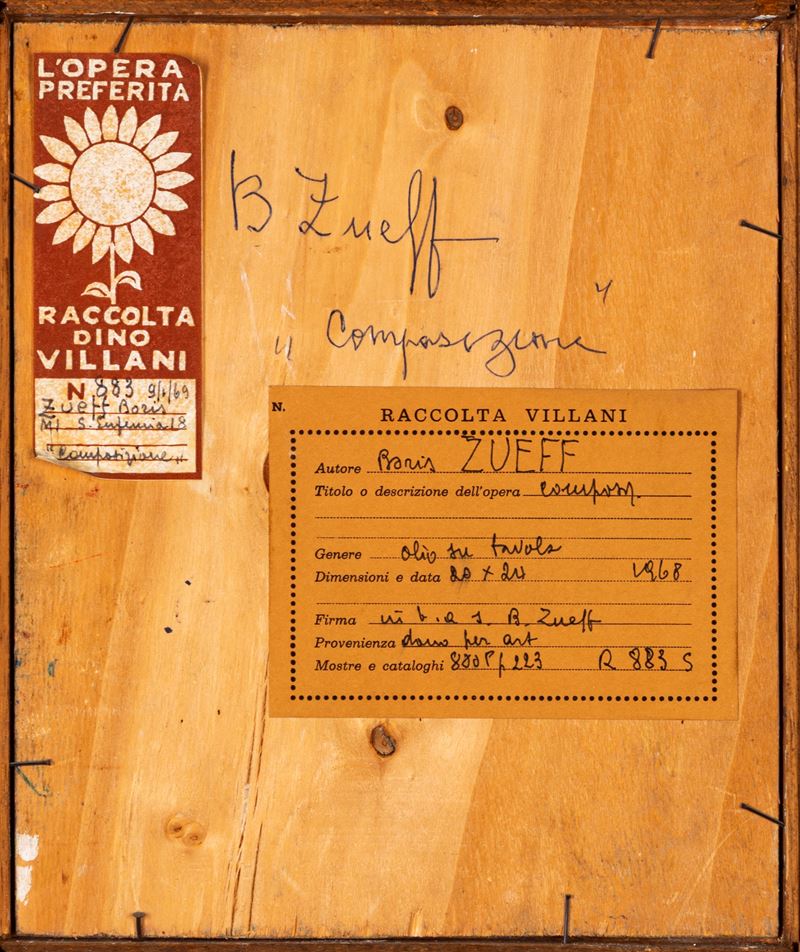 L'OPERA
PREFERITA
RACCOLTA
DINO
VILLANI
N 883 9/1/69
Zueff Boris
MI S. Eufemia 18
"Composizione"
B Zueff
"Composizione"
N.
RACCOLTA VILLANI
Autore Boris ZUEFF
Titolo o descrizione dell'opera
Genere olio su tavola
Dimensioni e data 20 x 24 1968
Firma in b. a s. B. Zueff
Provenienza dono per art
Mostre e cataloghi 223 R 883 S